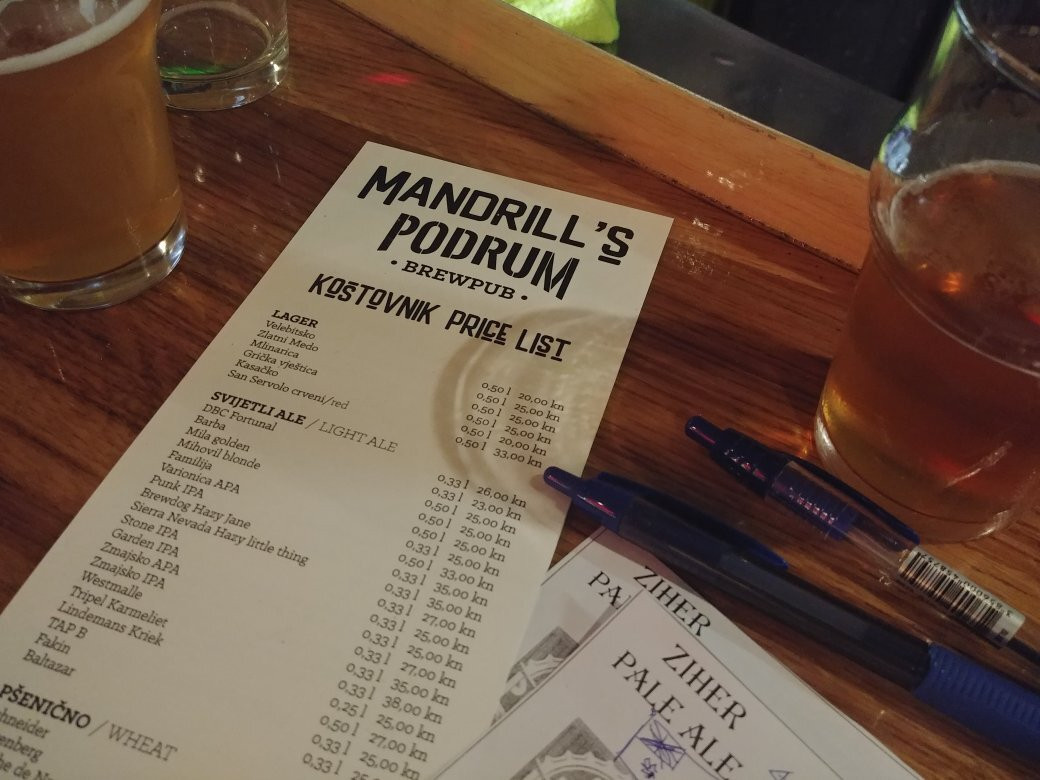 MANDRILL'S
PODRUM
· BREWPUB ·
KOŠTOVNIK PRICE LIST
LAGER
Velebitsko
Zlatni Medo
Mlinarica
Grička vještica
Kasačko
San Servolo crveni/red
0,50 l 20,00 kn
0,50 l 25,00 kn
0,50 l 25,00 kn
0,50 l 25,00 kn
0,50 l 20,00 kn
0,50 l 33,00 kn
SVIJETLI ALE / LIGHT ALE
DBC Fortunal
Barba
Mila golden
Mihovil blonde
Familija
Varionica APA
Punk IPA
Brewdog Hazy Jane
Sierra Nevada Hazy little thing
Stone IPA
Garden IPA
Zmajsko APA
Zmajsko IPA
Westmalle
Tripel Karmeliet
Lindemans Kriek
TAP B
Fakin
Baltazar
0,33 l 26,00 kn
0,33 l 23,00 kn
0,50 l 25,00 kn
0,50 l 25,00 kn
0,50 l 25,00 kn
0,33 l 33,00 kn
0,50 l 35,00 kn
0,33 l 27,00 kn
0,33 l 25,00 kn
0,33 l 25,00 kn
0,33 l 27,00 kn
0,33 l 35,00 kn
0,33 l 38,00 kn
0,33 l 25,00 kn
0,25 l 27,00 kn
0,50 l 25,00 kn
0,33 l
0,33 l
PŠENIČNO / WHEAT
hneider
enberg
he de N
ZIHER
PA
ZIHER
PALE ALE